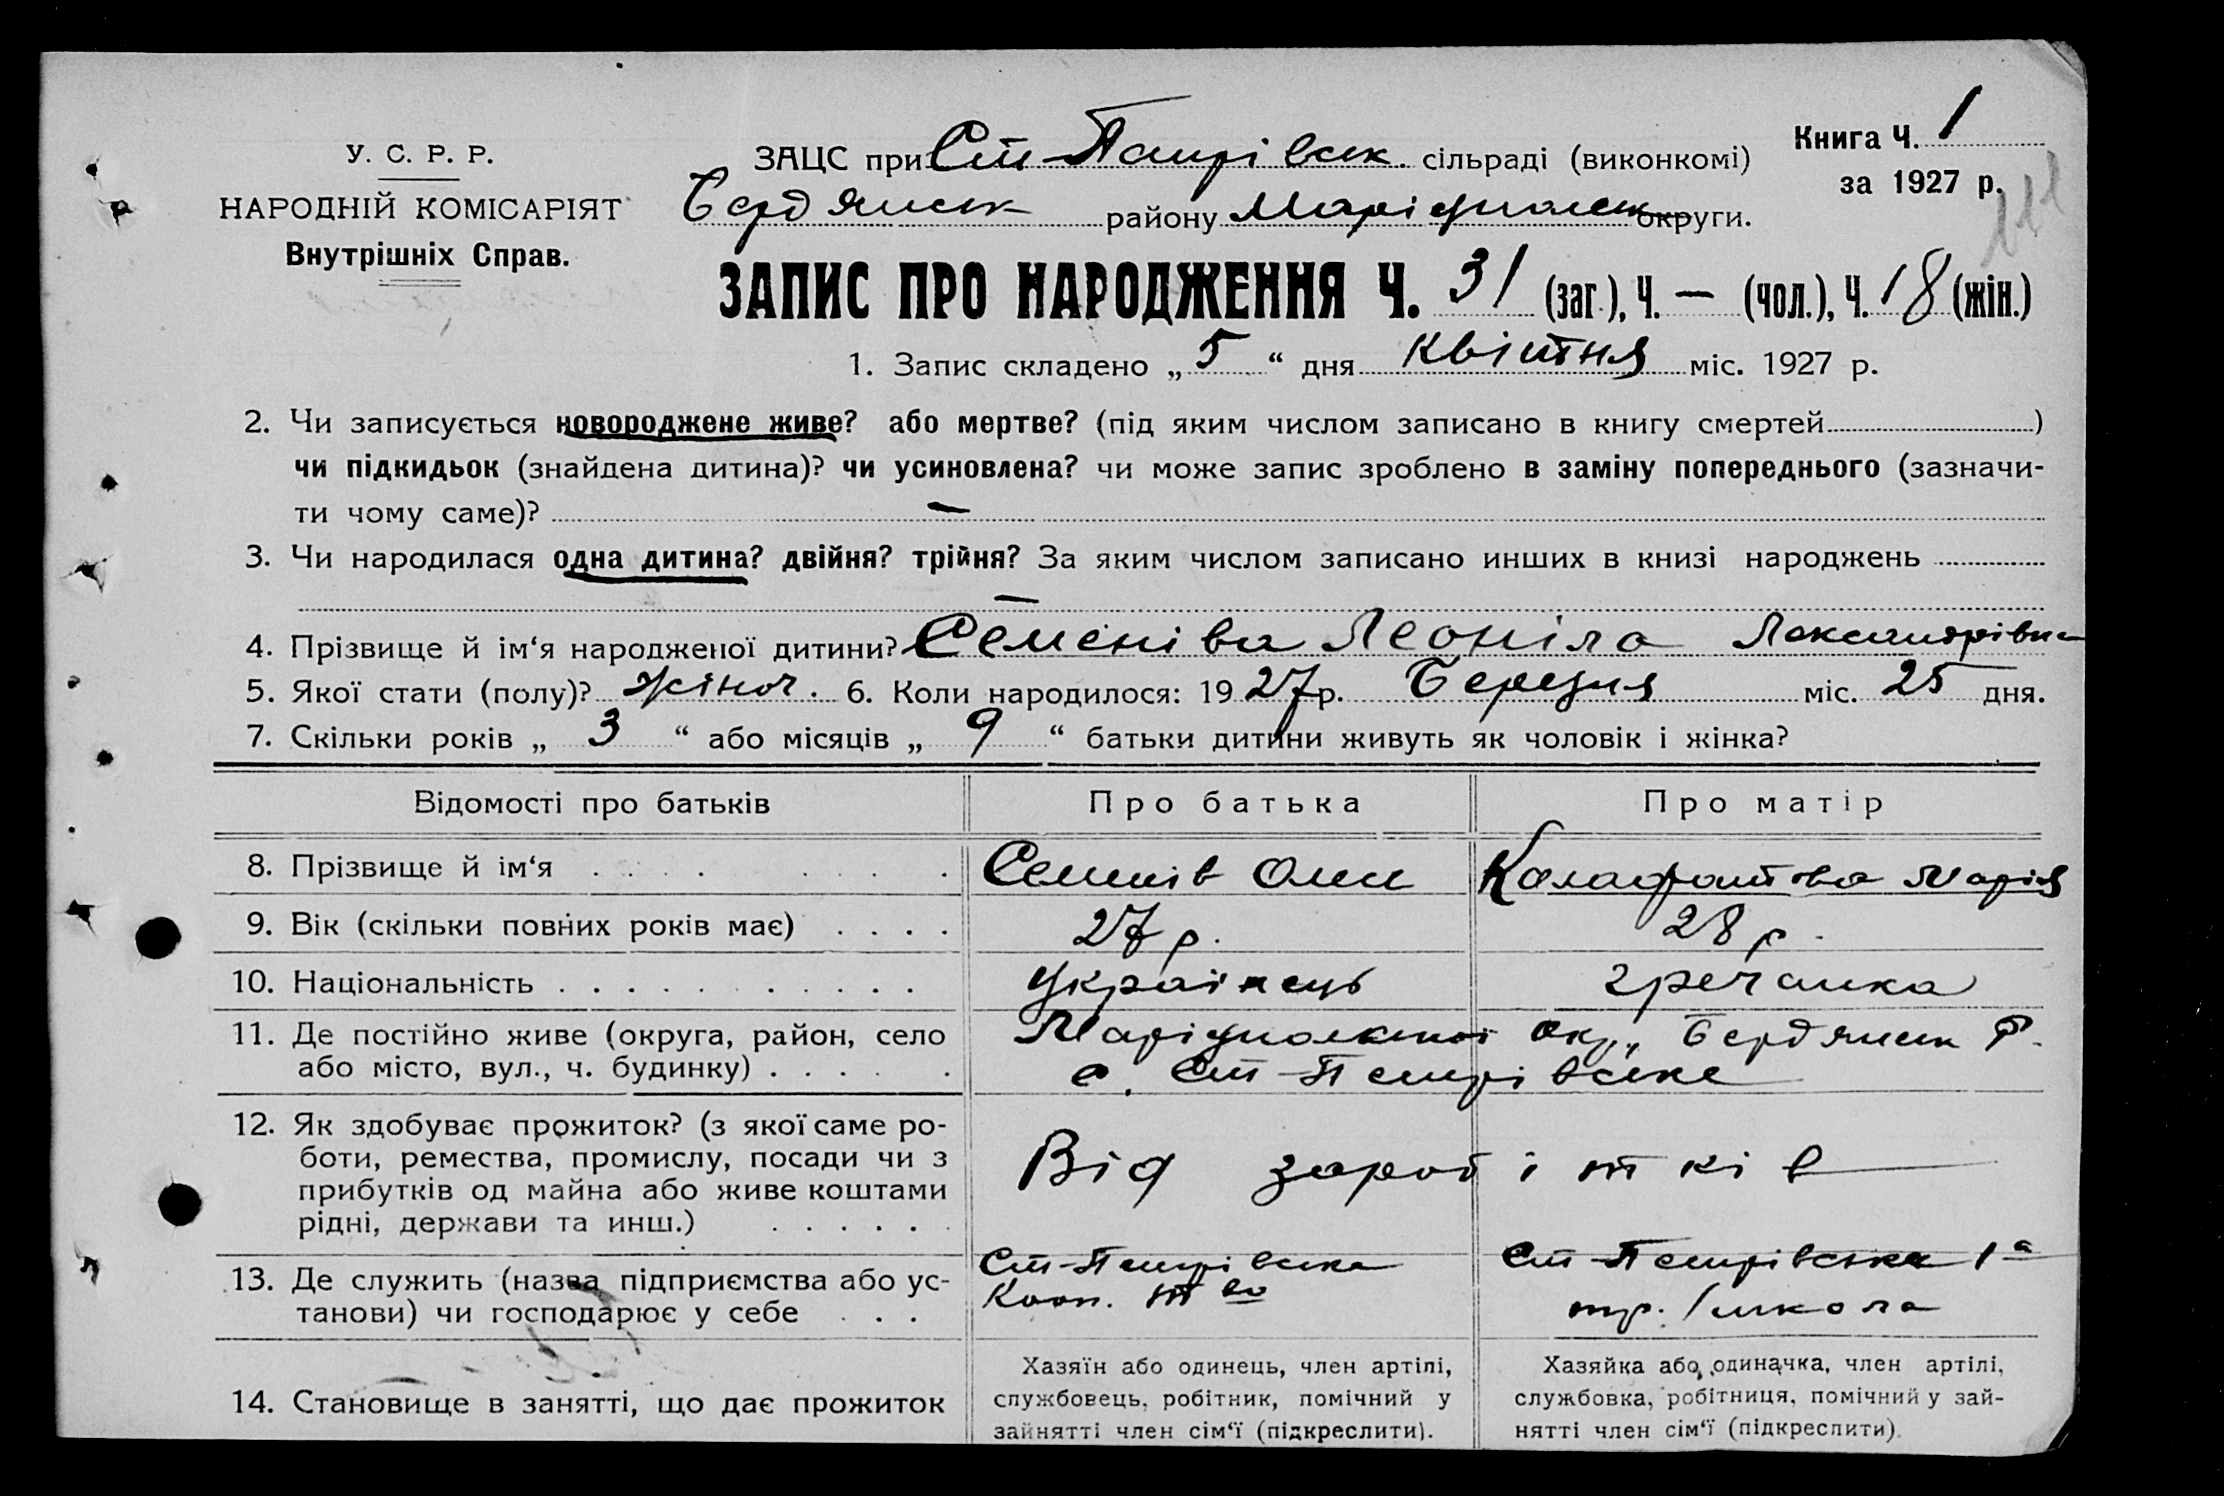 У. С. Р. Р.
НАРОДНІЙ КОМІСАРІЯТ
Внутрішніх Справ.
ЗАЦС при Ст-Петрівськ. сільраді (виконкомі)
Книга Ч. 1
за 1927 р.
Бердянськ району Маріупольськ округи.
ЗАПИС ПРО НАРОДЖЕННЯ Ч. 31 (заг.), Ч. — (чол.), Ч. 18 (жін.)
1. Запис складено „ 5 “ дня Квітня міс. 1927 р.
2. Чи записується новороджене живе? або мертве? (під яким числом записано в книгу смертей )
чи підкидьок (знайдена дитина)? чи усиновлена? чи може запис зроблено в заміну попереднього (зазначи-
ти чому саме)? —
3. Чи народилася одна дитина? двійня? трійня? За яким числом записано инших в книзі народжень
—
4. Прізвище й ім‘я народженої дитини? Семенівa Леоніла Лександрівна
5. Якої стати (полу)? жіноч. 6. Коли народилося: 1927 р. Березня міс. 25 дня.
7. Скільки років „ 3 “ або місяців „ 9 “ батьки дитини живуть як чоловік і жінка?
Відомості про батьків Про батька Про матір
8. Прізвище й ім‘я . . . . . . . . Семенів Олек Калафатова Марія
9. Вік (скільки повних років має) . . . . 27 р. 28 р.
10. Національність . . . . . . . . . . . українець гречанка
11. Де постійно живе (округа, район, село Маріупольської окр., Бердянськ Р.
або місто, вул., ч. будинку) . . . . . с. Ст-Петрівське
12. Як здобуває прожиток? (з якої саме ро-
боти, ремества, промислу, посади чи з Від заробітків
прибутків од майна або живе коштами
рідні, держави та инш.) . . . . . .
13. Де служить (назва підприємства або ус- Ст-Петрівське Ст-Петрівська 1а
танови) чи господарює у себе . . . Кооп. т-во тр. школа
14. Становище в занятті, що дає прожиток
Хазяїн або одинець, член артілі,
службовець, робітник, помічний у
зайнятті член сім‘ї (підкреслити).
Хазяйка або одиначка, член артілі,
службовка, робітниця, помічний у зай-
нятті член сім‘ї (підкреслити).